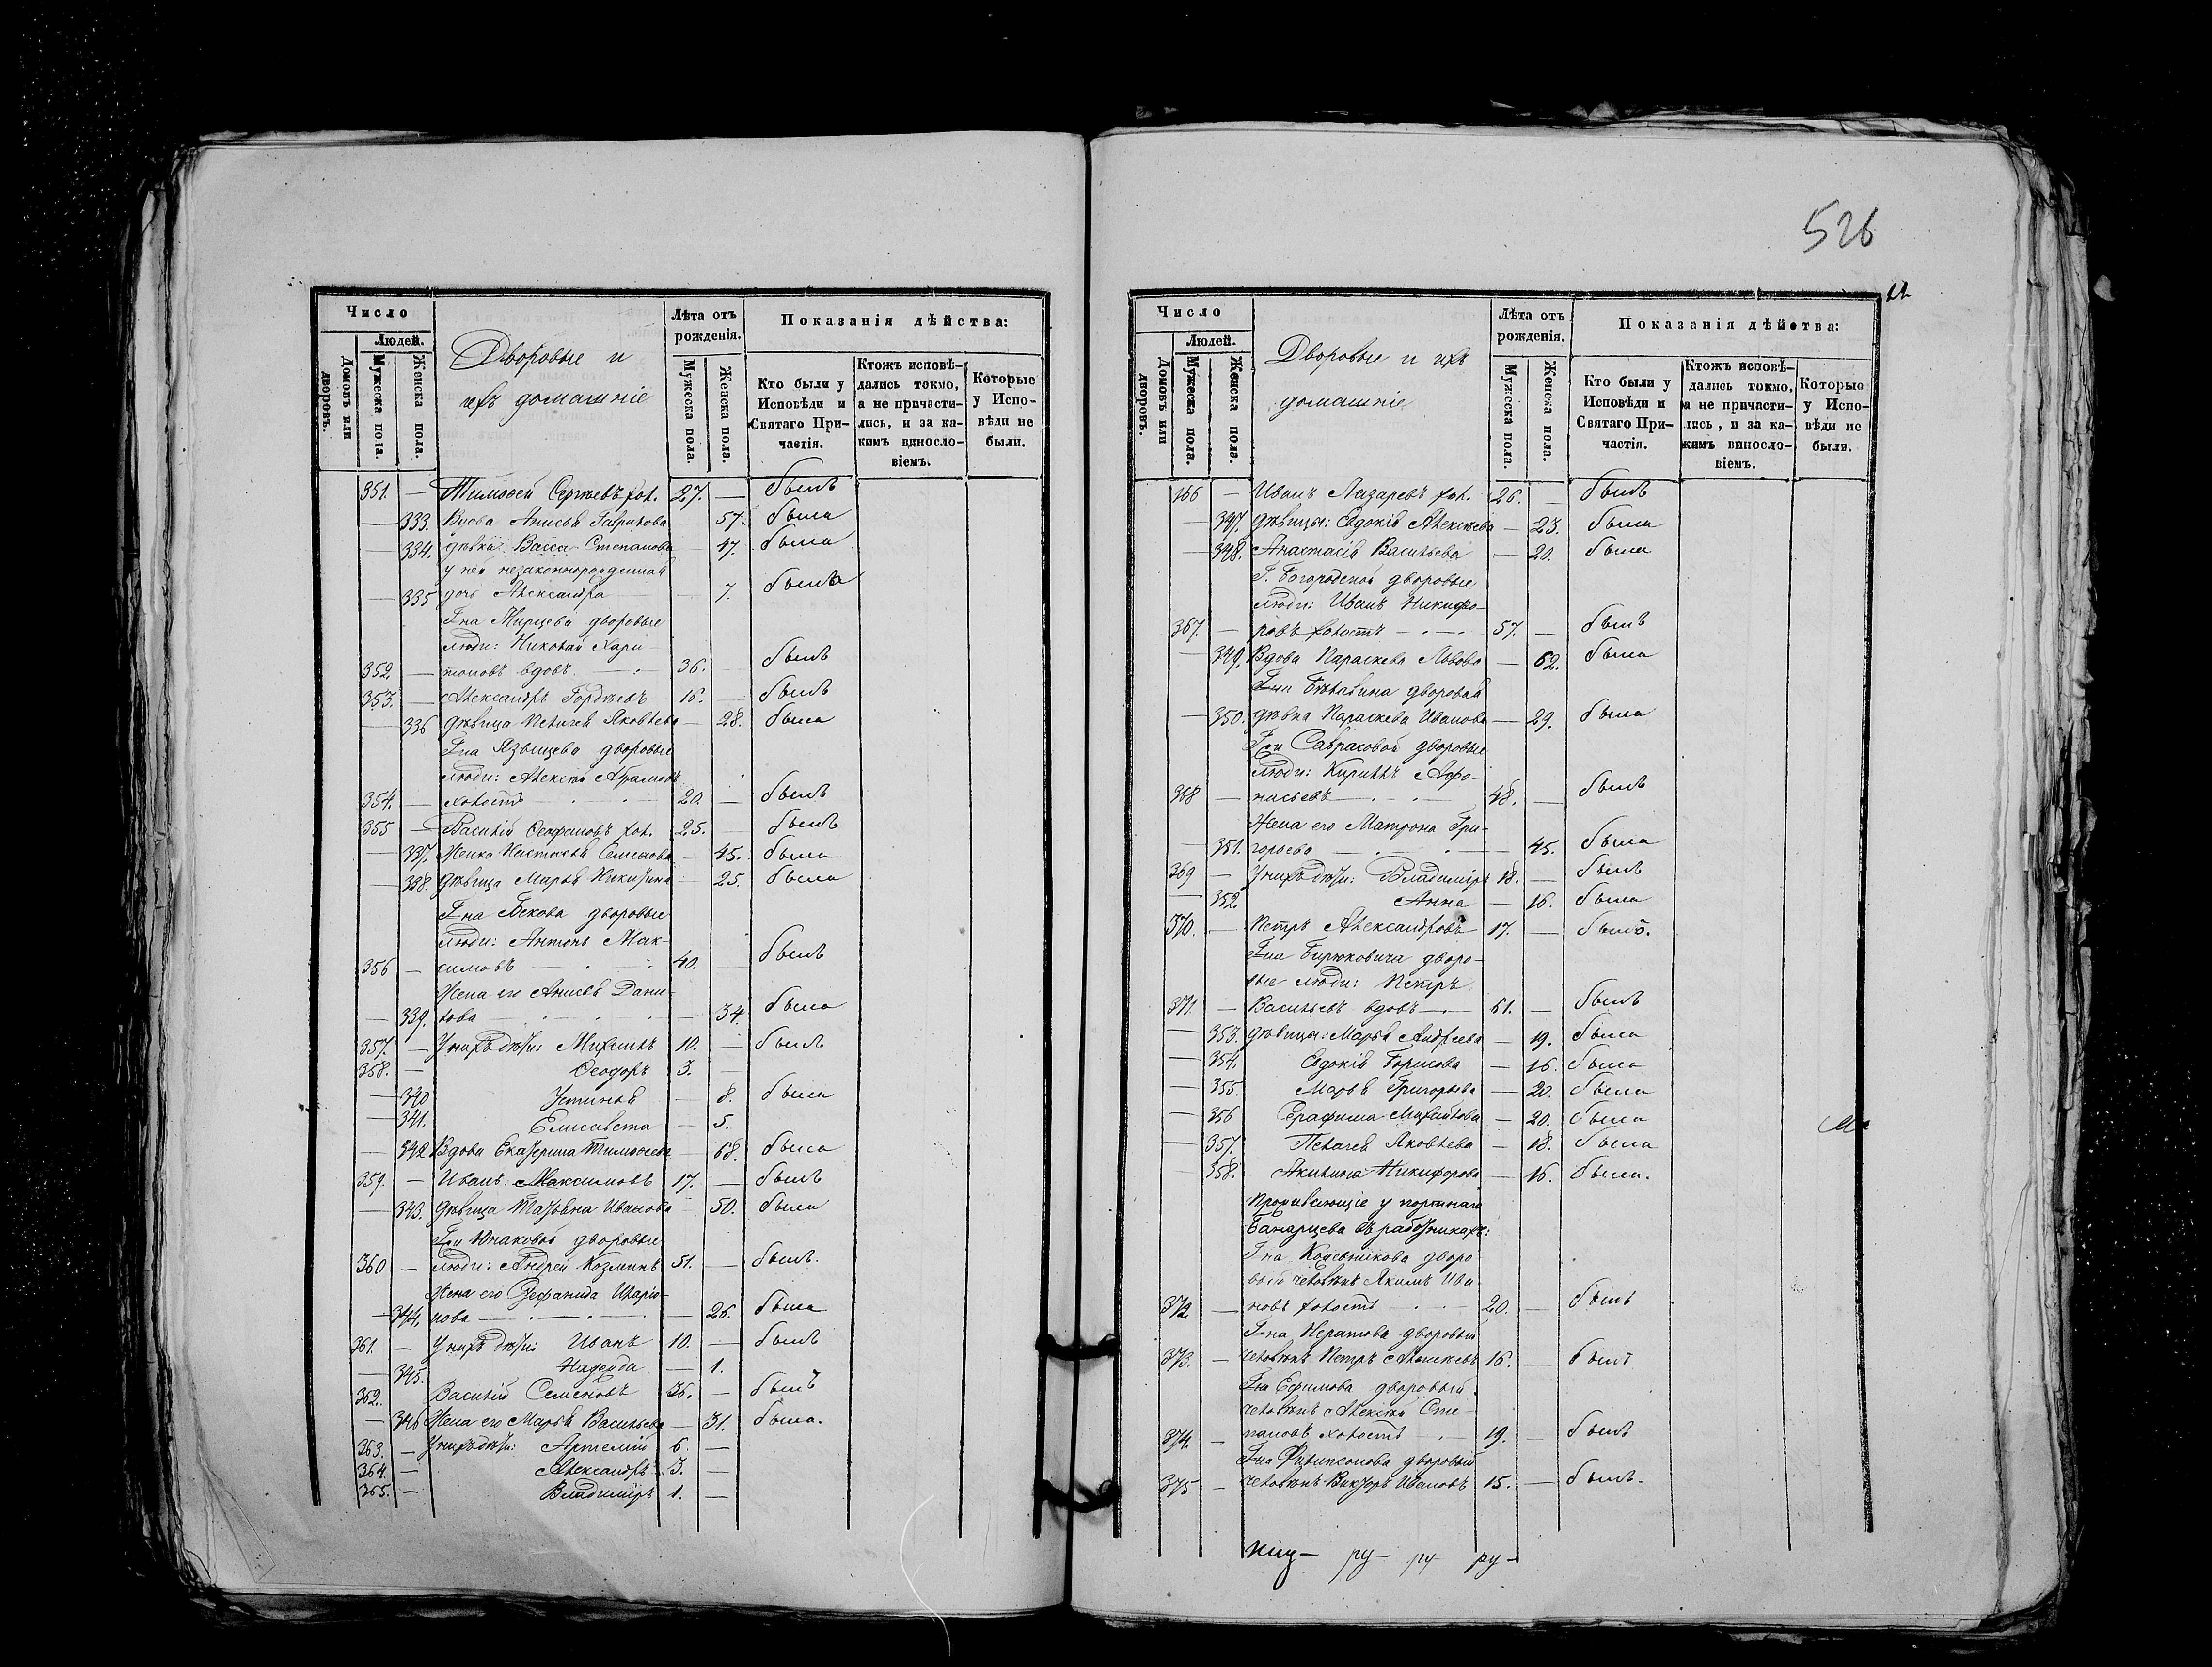 526
Число
Людей.
Домовъ или дворовъ.
Мужеска пола.
Женска пола.
Дворовые и
ихъ домашніе
Лѣта отъ рожденія.
Мужеска пола.
Женска пола.
Показанія дѣйства:
Кто были у Исповѣди и Святаго Причастія.
Ктожъ исповѣдались токмо, а не причастились, и за какимъ винословіемъ.
Которые у Исповѣди не были.
351. — Тимоѳей Сергѣевъ хол. 27. — былъ
— 333. Вдова Анисья Гаврилова — 57. была
— 334. дѣвка Васса Степанова 47. была
у нея незаконнорожденная
— 335 дочь Александра — 7. была
Г-на Мирцева дворовые
люди: Николай Хари-
352. — тоновъ вдовъ 36. — былъ
353. — Александръ Гордѣевъ 16. — былъ
— 336 дѣвица Пелагея Яковлева — 28. была
Г-на Языцева дворовые
люди: Алексѣй Абрамовъ
354. — холостъ 20. — былъ
355 — Василій Ѳеофановъ хол. 25. — былъ
— 337. Женка Настасья Семенова — 45. была
— 338. дѣвица Марья Никитина — 25. была
Г-на Бекова дворовые
люди: Антонъ Мак-
356 — симовъ 40. былъ
Жена его Анисья Дани-
— 339. лова — 34. была
357. — У нихъ дѣти: Михаилъ 10. — былъ
358. — Ѳеодоръ 3. —
— 340 Устинья — 8. была
— 341. Елисавета — 5.
— 342 Вдова Екатерина Тимоѳеева 68. была
359. — Иванъ Максимовъ 17. — былъ
— 343. дѣвица Татьяна Иванова — 50. была
Г-жи Юнаковой дворовые
360 — люди: Андрей Козминъ 51. — былъ.
Жена его Иларіо-
— 344. нова — 26. была
361. — У нихъ дѣти: Иванъ 10. — былъ
— 345. Надежда — 1.
362. Василій Семеновъ 36. — былъ
— 346 Жена его Марья Васильева — 31. была.
363. — У нихъ дѣти: Артемій 6. —
364. — Александръ 3. —
365. — Владиміръ 1. —
Число
Людей.
Домовъ или дворовъ.
Мужеска пола.
Женска пола.
Дворовые и ихъ
домашніе
Лѣта отъ рожденія.
Мужеска пола.
Женска пола.
Показанія дѣйства:
Кто были у Исповѣди и Святаго Причастія.
Ктожъ исповѣдались токмо, а не причастились, и за какимъ винословіемъ.
Которые у Исповѣди не были.
166 — Иванъ Лазаревъ хол. 26. — былъ
— 347. дѣвицы: Евдокія Алексѣева — 23. была
— 348. Анастасія Васильева — 20. была
Г. Богородской дворовые
люди: Иванъ Никифо-
367. — ровъ холостъ 57. — былъ
— 349. Вдова Параскева Львова — 62. была
дворовая
— 350. дѣвка Параскева Иванова — 29. была
Г-жи Савраковой дворовые
люди: Кириллъ Афо-
368 — насьевъ 48. — былъ
Жена его Матрона Гри-
— 351. горьева — 45. была
369 — У нихъ дѣти: Владиміръ 18. — былъ
— 352. Анна — 16. была
370. — Петръ Александровъ 17. — былъ.
Г-на Бирюковича дворо-
вые люди: Петръ
371. — Васильевъ вдовъ 61. — былъ
— 353. дѣвицы: Марья Андреева — 19. была
— 354. Евдокія Борисова — 16. была
— 355. Марья Григорьева — 20. была
— 356 Серафима Михайлова — 20. была
— 357. Пелагея Яковлева — 18. была
— 358. Акилина Никифорова — 16. была.
Проживающіе у портнаго
въ работникахъ:
дворо
вый человѣкъ Якимъ Ива-
372. — новъ холостъ 20. — былъ
Г-на Нератова дворовый
373. — человѣкъ Петръ Алексѣевъ 16. — былъ
Г-на Ефимова дворовый
человѣкъ Алексѣй Сте-
374. — пановъ холостъ 19. — былъ
Г-на Филипсонова дворовый
375 — человѣкъ Викторъ Ивановъ 15. — былъ.
ру — ру ру —